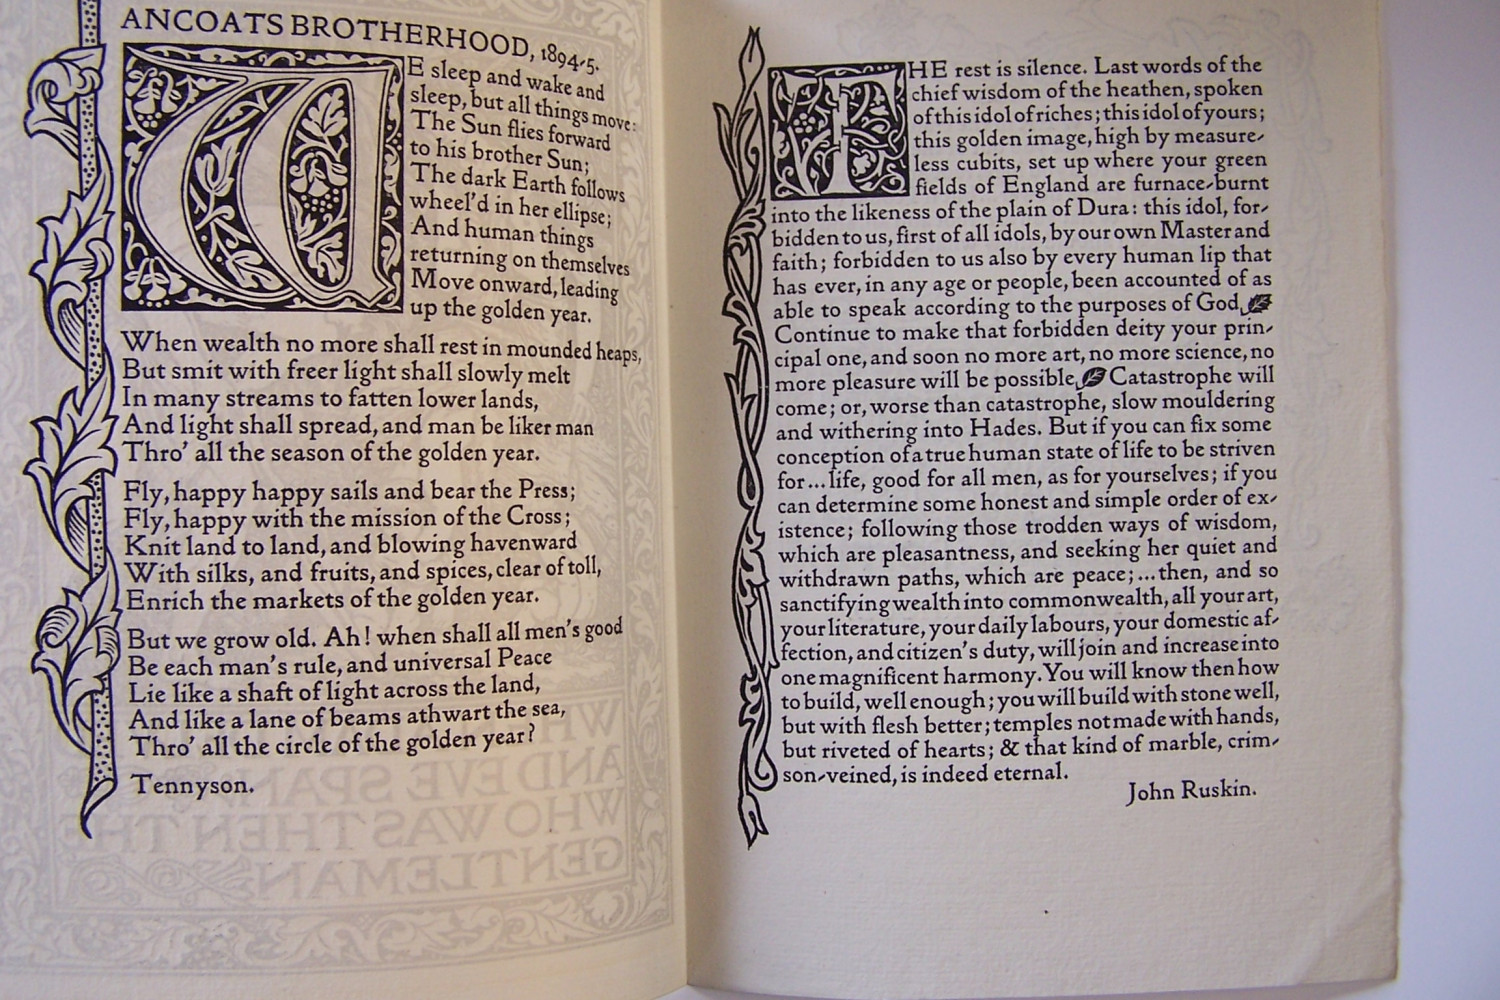 ANCOATS BROTHERHOOD, 1894-5.
WE sleep and wake and
sleep, but all things move:
The Sun flies forward
to his brother Sun;
The dark Earth follows
wheel'd in her ellipse;
And human things
returning on themselves
Move onward, leading
up the golden year.
When wealth no more shall rest in mounded heaps,
But smit with freer light shall slowly melt
In many streams to fatten lower lands,
And light shall spread, and man be liker man
Thro' all the season of the golden year.
Fly, happy happy sails and bear the Press;
Fly, happy with the mission of the Cross;
Knit land to land, and blowing havenward
With silks, and fruits, and spices, clear of toll,
Enrich the markets of the golden year.
But we grow old. Ah! when shall all men's good
Be each man's rule, and universal Peace
Lie like a shaft of light across the land,
And like a lane of beams athwart the sea,
Thro' all the circle of the golden year?
Tennyson.
WH
AND EVE SPAN
WHO WAS THEN THE
GENTLEMAN
THE rest is silence. Last words of the
chief wisdom of the heathen, spoken
of this idol of riches; this idol of yours;
this golden image, high by measure-
less cubits, set up where your green
fields of England are furnace-burnt
into the likeness of the plain of Dura: this idol, for-
bidden to us, first of all idols, by our own Master and
faith; forbidden to us also by every human lip that
has ever, in any age or people, been accounted of as
able to speak according to the purposes of God.
Continue to make that forbidden deity your prin-
cipal one, and soon no more art, no more science, no
more pleasure will be possible. Catastrophe will
come; or, worse than catastrophe, slow mouldering
and withering into Hades. But if you can fix some
conception of a true human state of life to be striven
for...life, good for all men, as for yourselves; if you
can determine some honest and simple order of ex-
istence; following those trodden ways of wisdom,
which are pleasantness, and seeking her quiet and
withdrawn paths, which are peace;...then, and so
sanctifying wealth into commonwealth, all your art,
your literature, your daily labours, your domestic af-
fection, and citizen's duty, will join and increase into
one magnificent harmony. You will know then how
to build, well enough; you will build with stone well,
but with flesh better; temples not made with hands,
but riveted of hearts; & that kind of marble, crim-
son-veined, is indeed eternal.
John Ruskin.